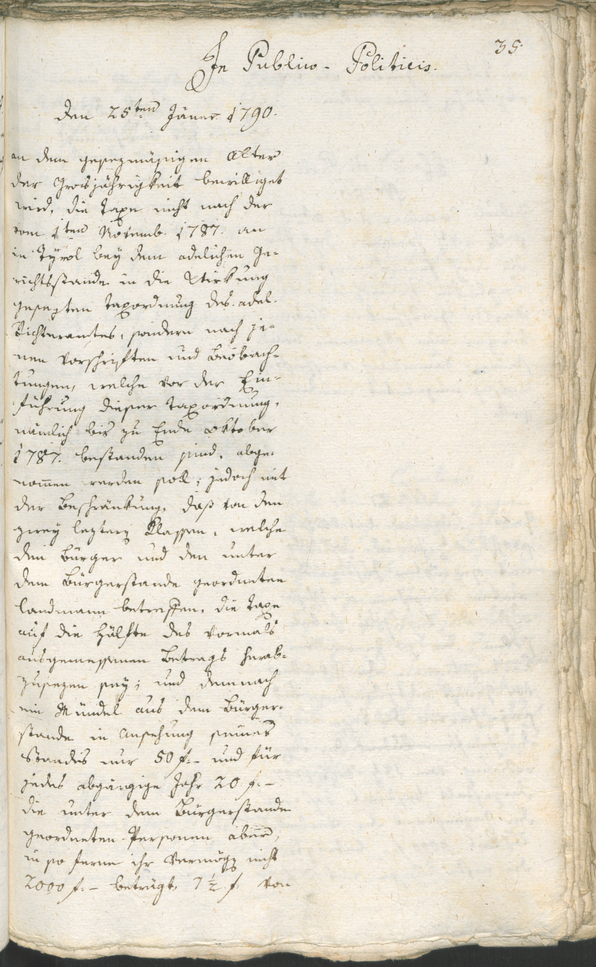 35
In Publico-Politicis.
den 25ten Jäner 1790.
an dem gesezmäsigen Alter
der Grosjährigkeit bewilliget
wird, die Taxe nicht nach der
vom 1ten Novemb. 1787. an
in Tÿrol beÿ dem adelichen Ge-
richtsstande in die Wirkung
gesezten Taxordnung des adel.
Richteramtes, sondern nach je-
nen Vorschriften und Beobach-
tungen, welche vor der Ein-
führung dieser Taxordnung,
nämlich bis zu Ende Oktober
1787. bestanden sind, abge-
nommen werden soll; jedoch mit
der Beschränkung, daß von den
zweÿ leztern Klassen, welche
den Bürger und den unter
dem Bürgerstande geordneten
Landmann betreffen, die Taxe
auf die Hälfte des vormals
ausgemessenen Betrags herab-
zusezen seÿ; und demnach
ein Mündel aus dem Bürger-
stande in Ansehung seines
Standes nur 50 f.- und für
jedes abgängige Jahr 20 f.-
die unter dem Bürgerstande
geordneten Personen aber,
in so ferne ihr Vermög nicht
2000 f.- beträgt, 7½ f. von